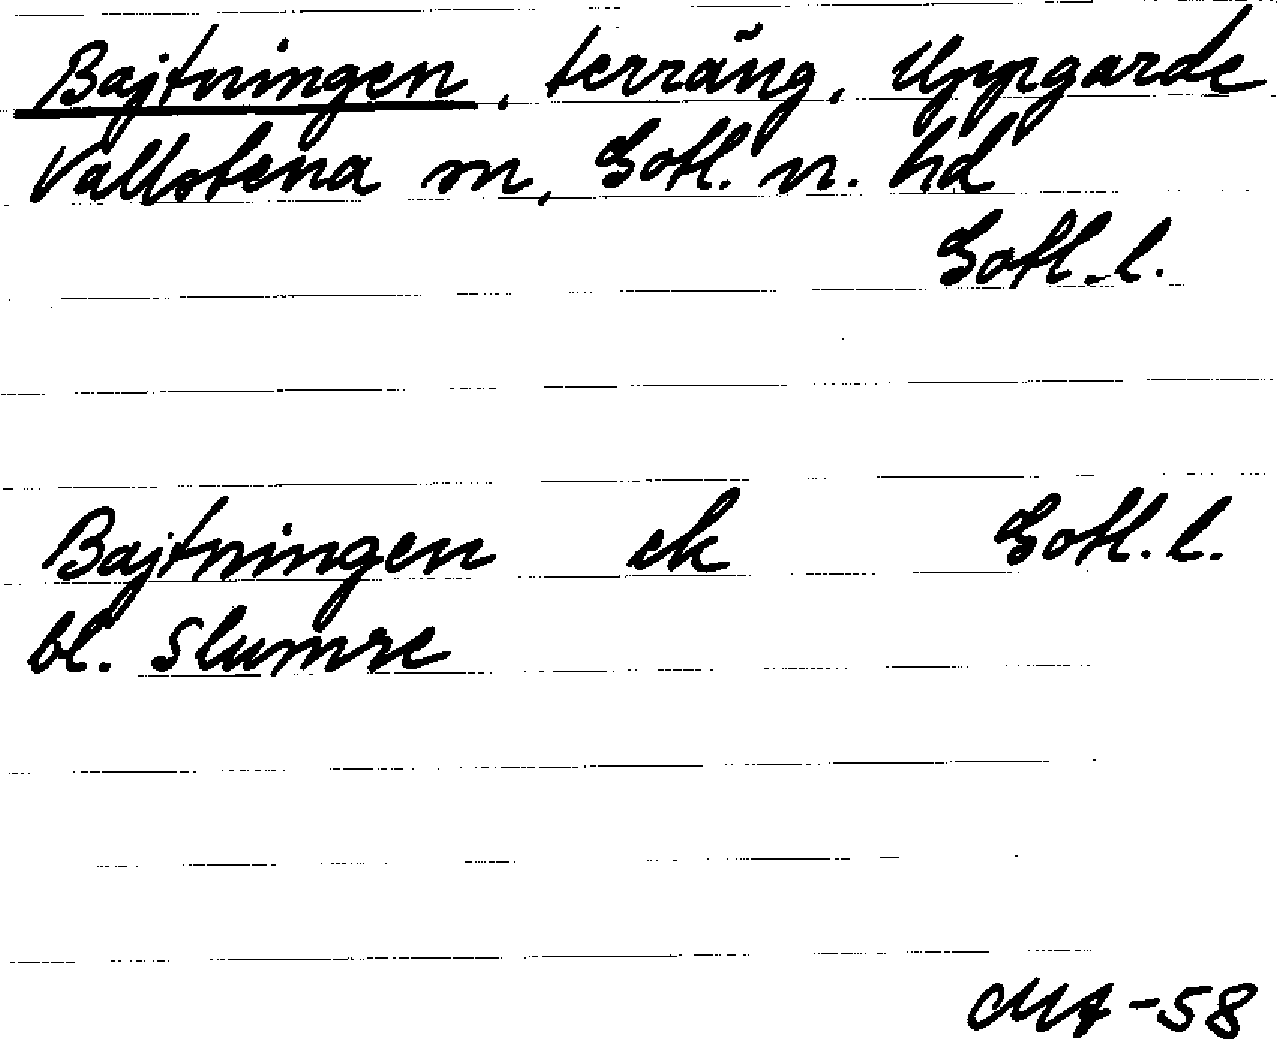 Bajtningen, terräng, Uppgarde
Vallstena sn, Gotl. n. hd
Gotl. l.
Bajtningen ek Gotl. l.
bl. Slumre
MA-58